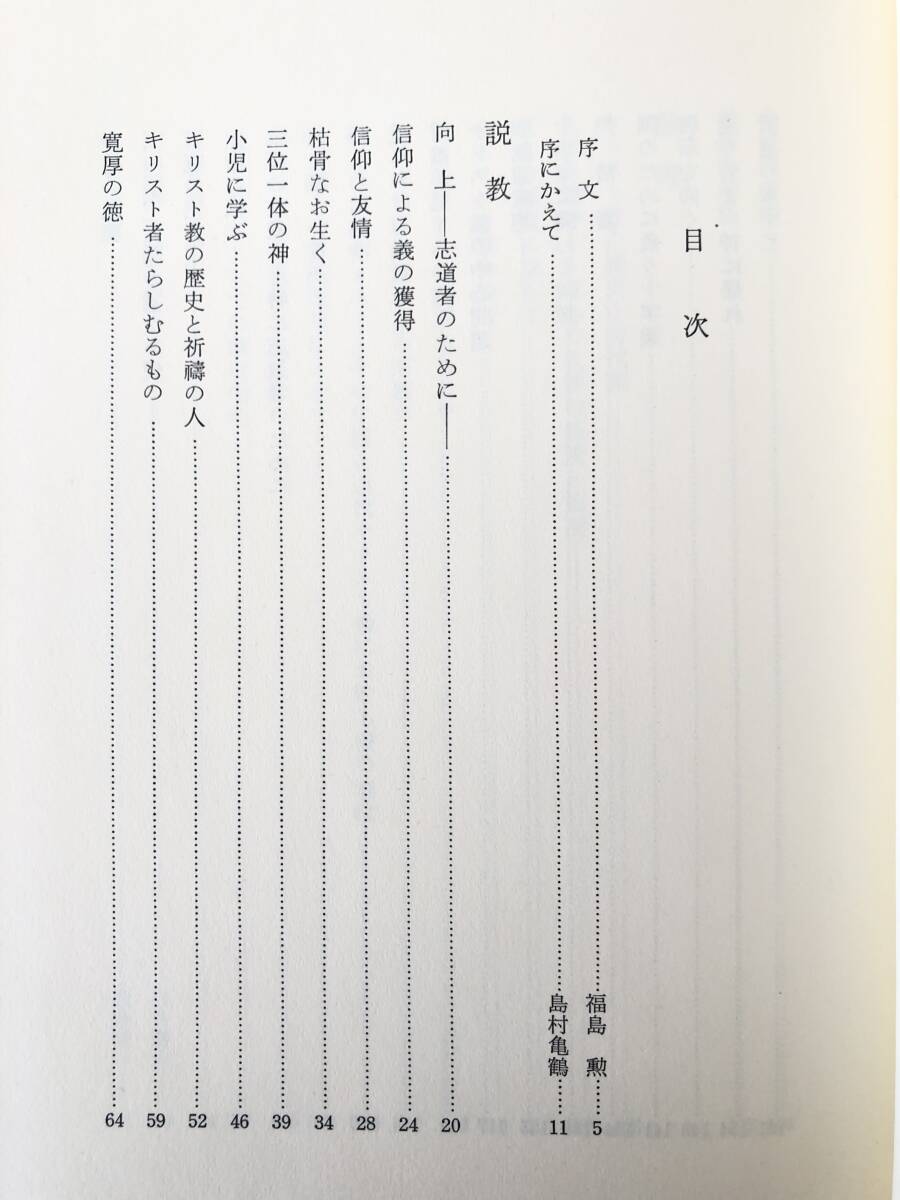 目次
序文……福島 勲……5
序にかえて……島村亀鶴……11
説教
向 上――志道者のために――……20
信仰による義の獲得……24
信仰と友情……28
枯骨なお生く……34
三位一体の神……39
小児に学ぶ……46
キリスト教の歴史と祈禱の人……52
キリスト者たらしむるもの……59
寛厚の徳……64